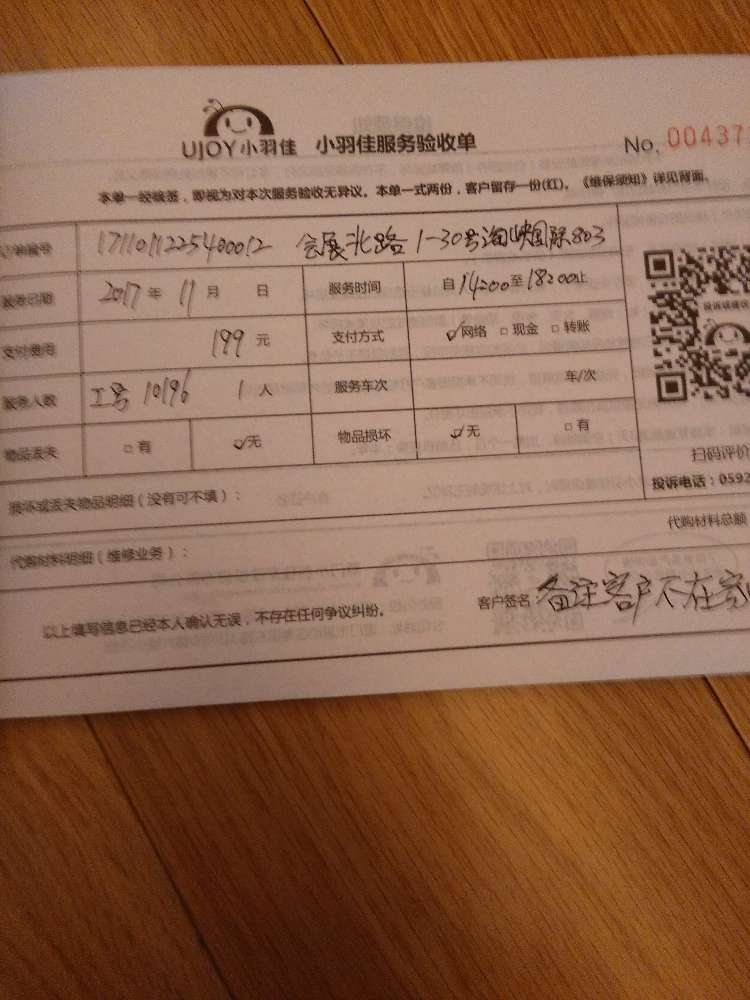 UJOY小羽佳 小羽佳服务验收单 No. 00437
本单一经核签，即视为对本次服务验收无异议。本单一式两份，客户留存一份(红)。《维保须知》详见背面。
订单编号 1711011225400012 会展北路 1-30号 国际803
服务日期 2017年 11月 日 服务时间 自14:00至18:00止
支付费用 199元 支付方式 ☑网络 □现金 □转账
服务人数 工号 10196 1人 服务车次 车/次
物品丢失 □有 ☑无 物品损坏 ☑无 □有
扫码评价
投诉电话：0592
损坏或丢失物品明细（没有可不填）：
代购材料总额
代购材料明细（维修业务）：
以上填写信息已经本人确认无误，不存在任何争议纠纷。 客户签名：备注客户不在家